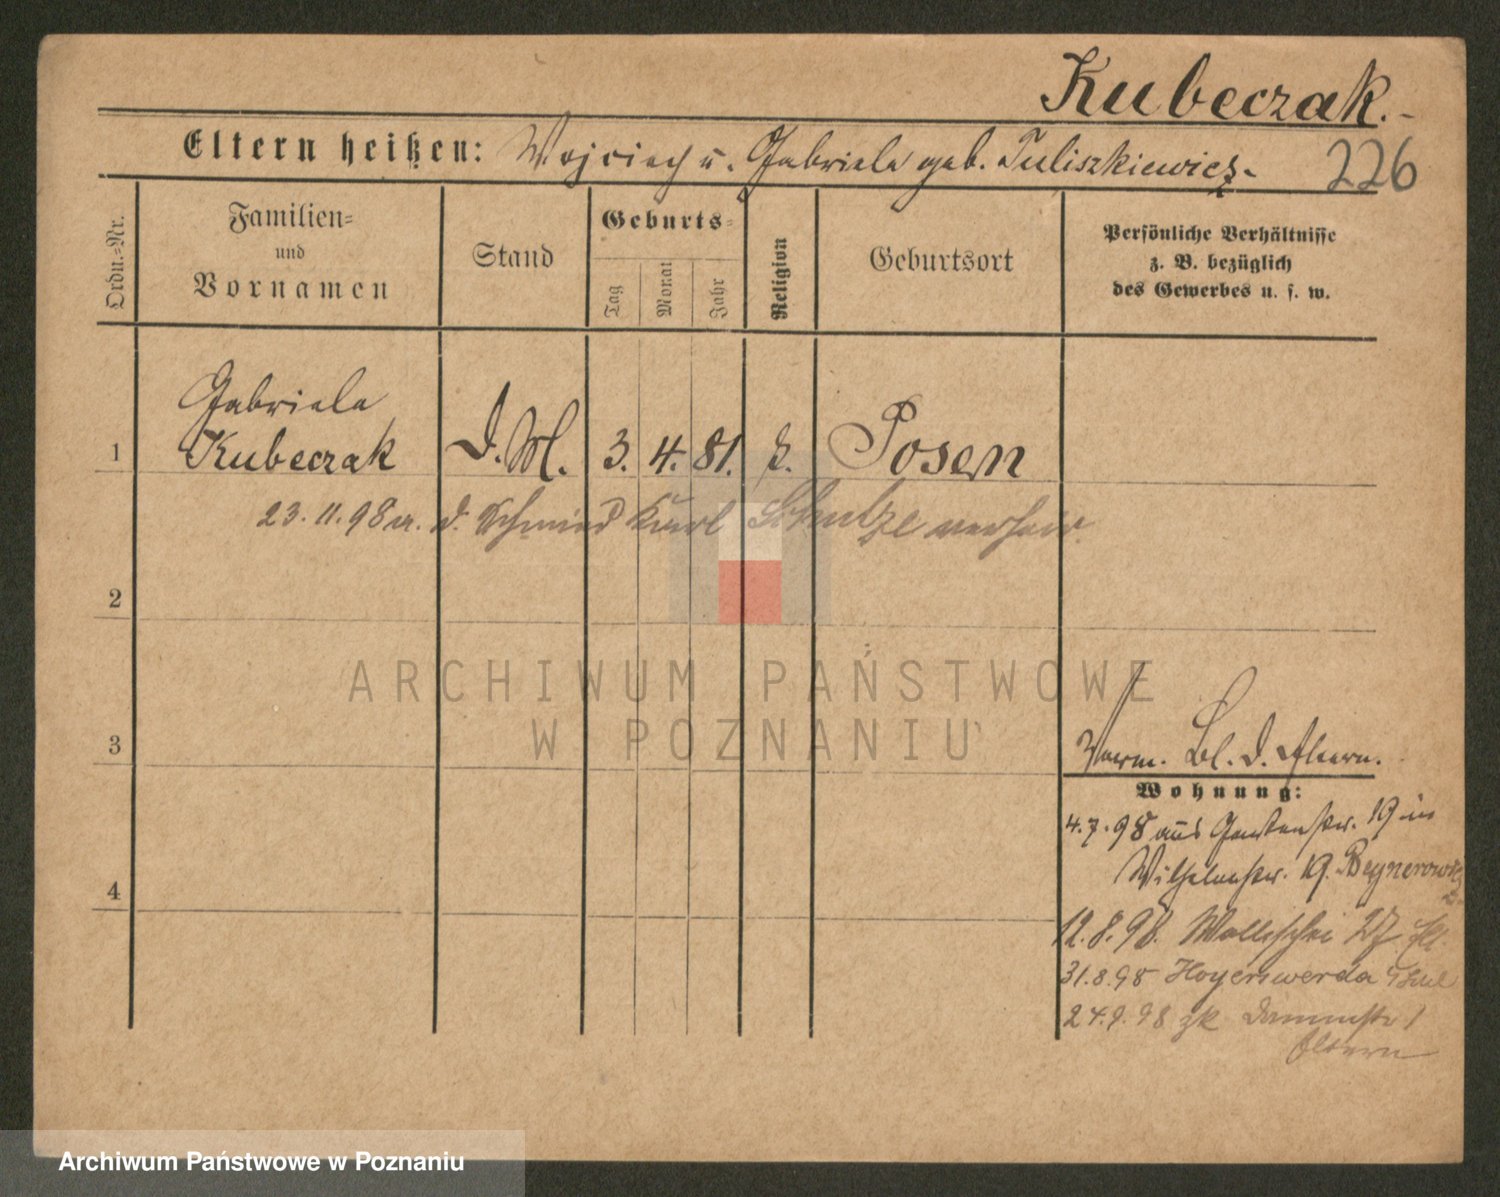 Kubeczak.
Eltern heißen: Wojciech u. Gabriela geb. Tuliszkiewicz.
226
Ordn.=Nr.
Familien=
und
Vornamen
Stand
Geburts=
Tag
Monat
Jahr
Religion
Geburtsort
Persönliche Verhältnisse
z. B. bezüglich
des Gewerbes u. s. w.
1
Gabriela
Kubeczak
D. M.
3.
4.
81.
k.
Posen
23.11.98 a. d. Schmied Karl Schulze verheir.
2
3
4
Verm. Bl. d. Eltern.
Wohnung:
4.7.98 aus Gartenstr. 19 in
Wilhelmstr. 19.
12.8.98. Wallischei 27
31.8.98 Hoyerswerda
24.9.98 zk Dammstr 1
Eltern
ARCHIWUM PAŃSTWOWE
W POZNANIU
Archiwum Państwowe w Poznaniu